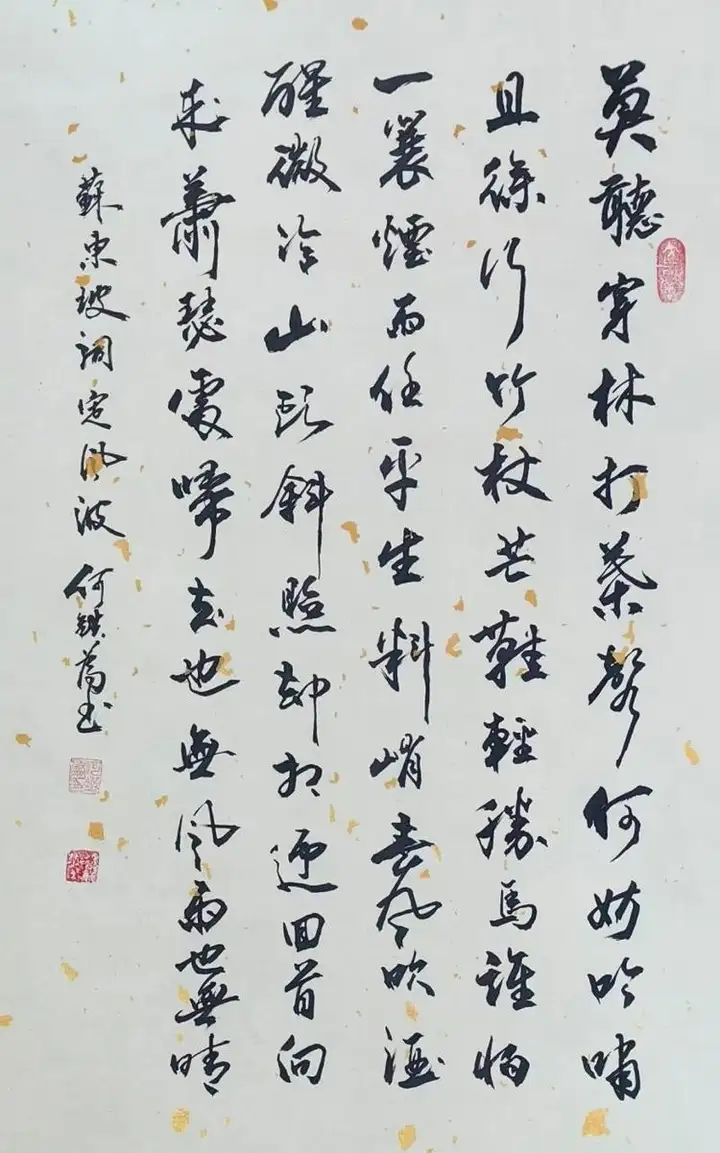 莫聽穿林打葉聲何妨吟嘯
且徐行竹杖芒鞋輕勝馬誰怕
一蓑煙雨任平生料峭春風吹酒
醒微冷山頭斜照却相迎回首向
來蕭瑟處歸去也無風雨也無晴
蘇東坡詞定風波 何书